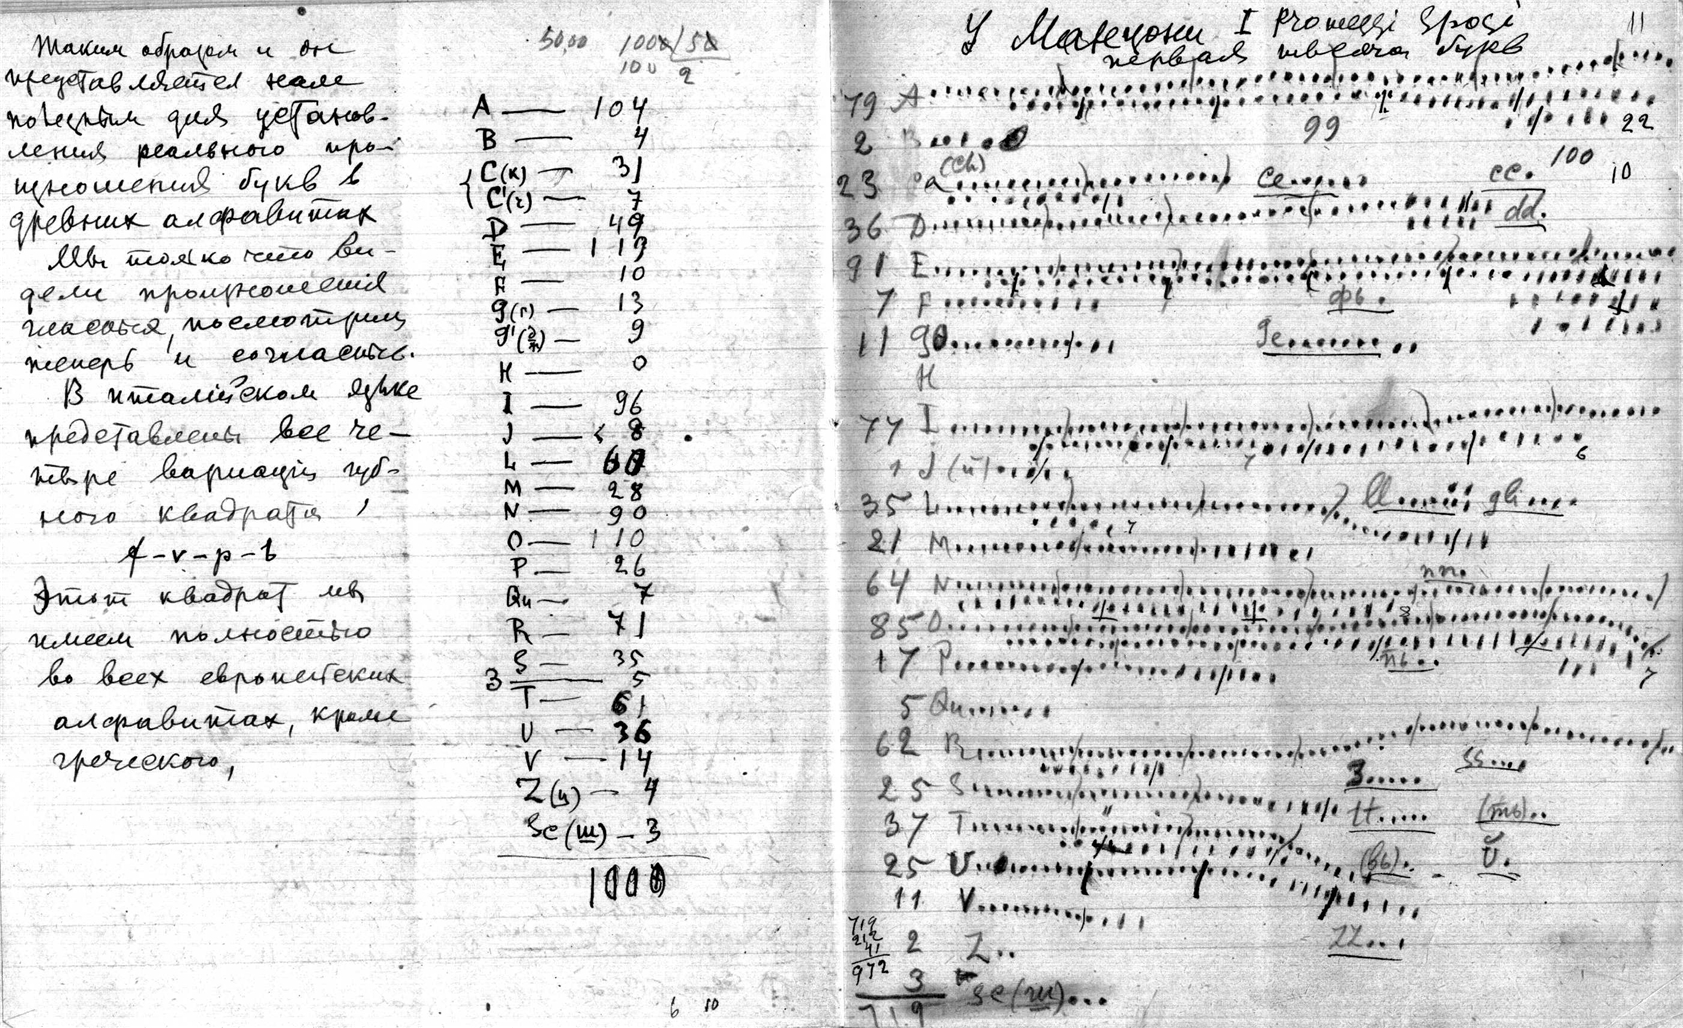 Таким образом и он
представляется нам
полезным для установ-
ления реального про-
изношения букв в
древних алфавитах
Мы только что ви-
дели произношения
гласных, посмотрим
теперь и согласных.
В италійском языке
представлены все че-
тыре вариаціи губ-
ного квадрата
f-v-p-b
Этот квадрат мы
имеем полностью
во всех европейских
алфавитах, кроме
греческого,
5000 1000/50
100 2
A — 104
B — 4
C(к) — 31
C'(ч) — 7
D — 49
E — 113
F — 10
g(г) — 13
g' — 9
H — 0
I — 96
J — 8
L — 60
M — 28
N — 90
O — 110
P — 26
Qu — 7
R — 71
S — 35
З — 5
T — 61
U — 36
V — 14
Z(ц) — 4
Sc(ш) — 3
1000
6 10
11
У Манцони I Promessi Sposi
первая тысяча букв
79 A
99 22
2 B
(ch)
23 Ca ce cc. 100 10
36 D dd.
91 E
7 F фь.
11 g ge
H
77 I
7 6
1 J (й)
35 L ll gli
7
21 M
64 N nn.
85 O 8
17 P пь.
7
5 Qu
62 R
25 S З ss
37 T tt (ть)
25 U (вь). Ŭ.
11 V
719
212
41
972
2 Z zz
3 Sc(ш)
719